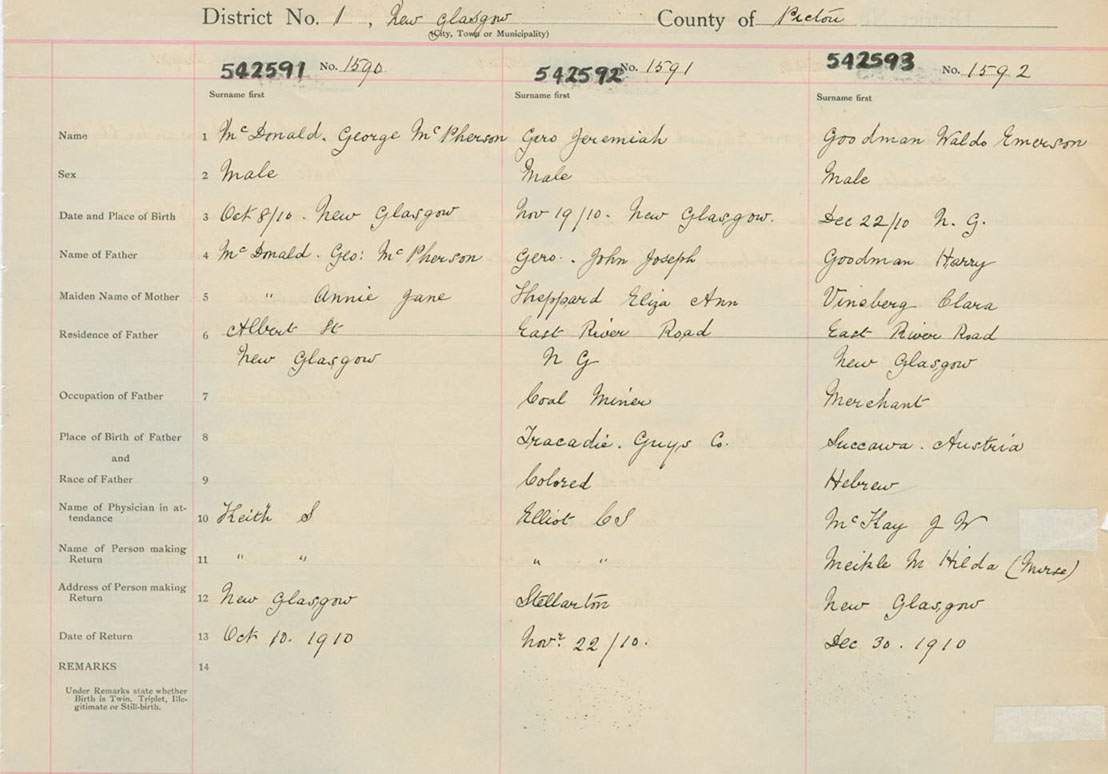 District No. 1, New Glasgow County of Pictou
(City, Town or Municipality)
542591 No. 1590 542592 No. 1591 542593 No. 1592
Surname first Surname first Surname first
Name 1 McDonald. George McPherson Gero Jeremiah Goodman Waldo Emerson
Sex 2 Male Male Male
Date and Place of Birth 3 Oct 8/10. New Glasgow Nov 19/10. New Glasgow. Dec 22/10 N. G.
Name of Father 4 McDonald. Geo: McPherson Gero. John Joseph Goodman Harry
Maiden Name of Mother 5 " Annie Jane Sheppard Eliza Ann Vinsberg Clara
Residence of Father 6 Albert St East River Road East River Road
New Glasgow N G New Glasgow
Occupation of Father 7 Coal Miner Merchant
Place of Birth of Father 8 Tracadie. Guys Co. Succawa. Austria
and
Race of Father 9 Colored Hebrew
Name of Physician in at-
tendance 10 Keith S Elliot C S McKay J W
Name of Person making
Return 11 " " " " Meikle M Hilda (Nurse)
Address of Person making
Return 12 New Glasgow Stellarton New Glasgow
Date of Return 13 Oct 10. 1910 Novr. 22/10. Dec 30. 1910
REMARKS 14
Under Remarks state whether
Birth is Twin, Triplet, Ille-
gitimate or Still-birth.